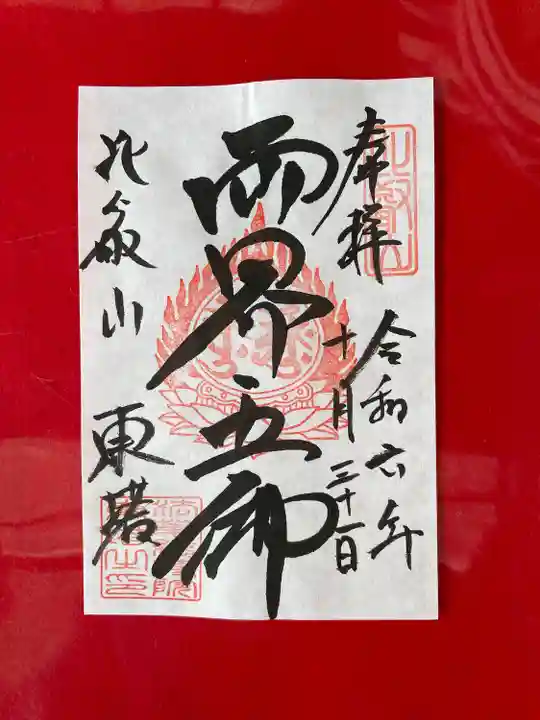 奉拝
令和六年
十月三十一日
両界五佛
比叡山 東塔
比叡山